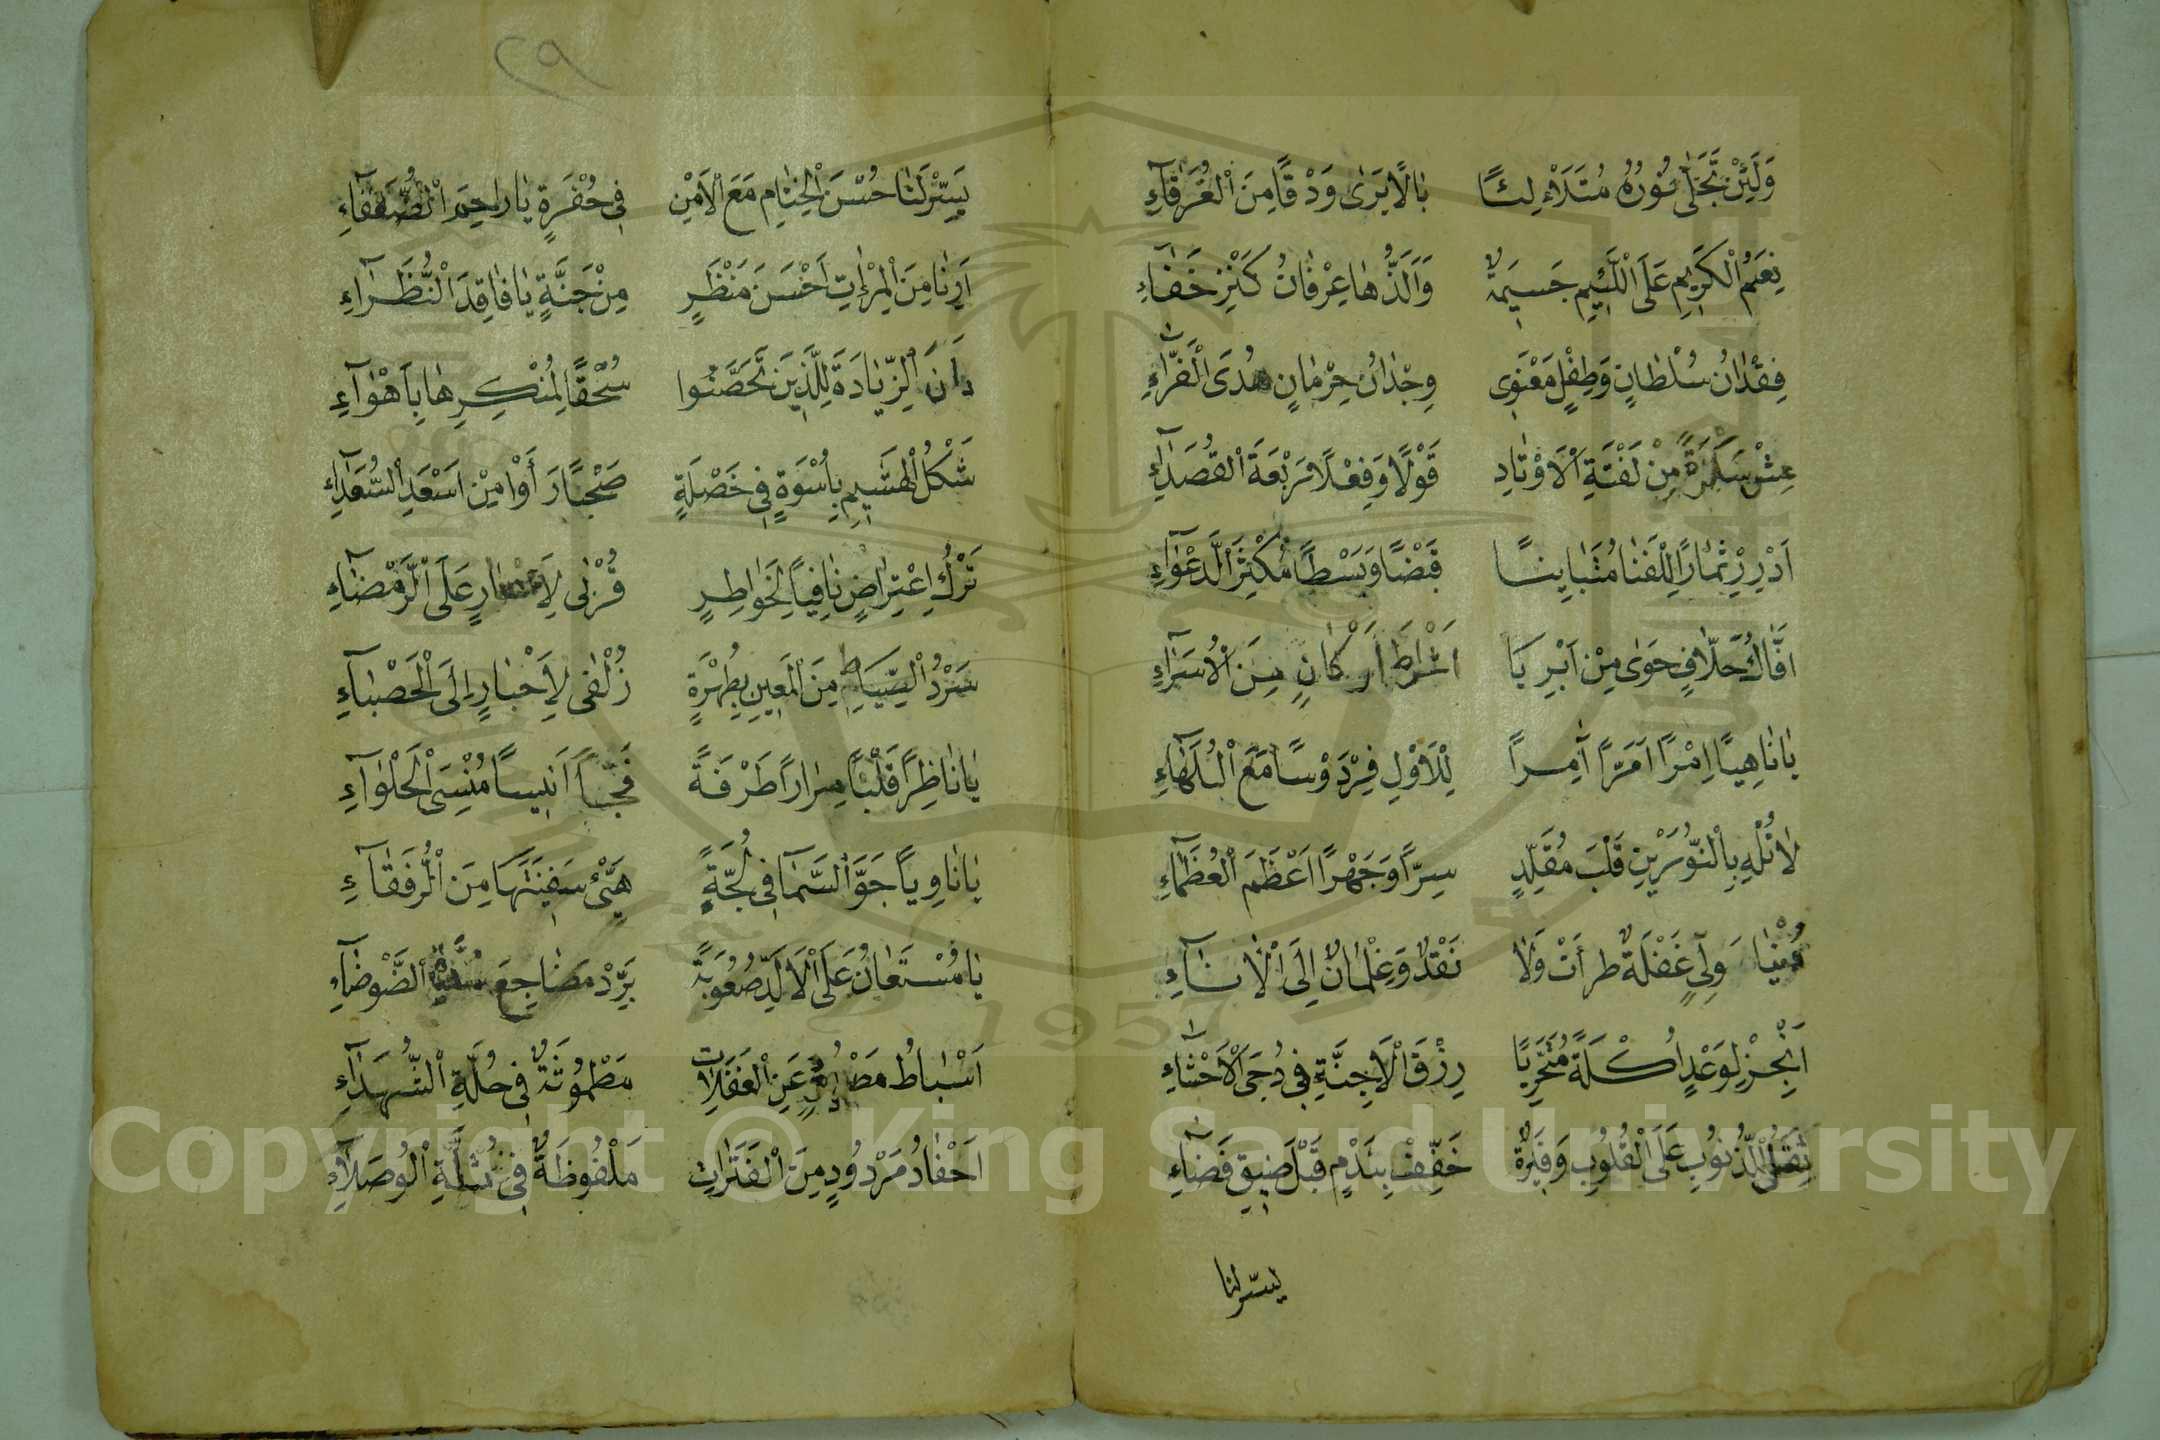 وَلَئِنْ تَجَلّٰى نُورُهُ مُتَلَاْلِئًا بٰالًا يَرٰى وَدْقًا مِنَ الْغُرَفَآءِ
نِعَمُ الْكَرِيمِ عَلَى اللَّئِيمِ جَسِيمَةٌ وَاَلَذُّهٰا عِرْفٰانُ كَنْزِ خَفَآءِ
فِقْدٰانُ سُلْطٰانٍ وَطِفْلٍ مَعْنَوِى وِجْدٰانُ حِرْمٰانٍ هُدَى الْغَرّٰآءِ
مِنْ لَفْتَةِ الْاَوْتٰادِ قَوْلًا وَفِعْلًا مَرْبَعَةَ الْقُصَدٰآءِ
اَدْرِزْ ثِمٰارًا لِلْفَنٰا مُتَبٰايِنًا قَبْضًا وَبَسْطًا مُكْثِرَ الدَّعْوٰآءِ
حَوٰى مِنْ اَبْرِيَا اَشْرٰاطَ اَرْكٰانٍ مِنَ الْاُسَرٰآءِ
يٰا نٰاهِيًا اِمْرًا اَمَرًّا آمِرًا لِلْاَوْلِ فِرْدَوْسًا مَعَ الْبُلَهٰآءِ
لٰا تُلْهِ بِالنُّورَيْنِ قَلْبَ مُقَلِّدٍ سِرًّا وَجَهْرًا اَعْظَمَ الْعُظَمٰآءِ
وَلِىٍّ غَفْلَةٌ طرأَتْ وَلَا نَقْدٌ وَغِلْمٰانٌ اِلَى الْاٰنٰآءِ
اَنْجِزْ لِوَعْدٍ اُكْلَةً مُتَحَرِّيًا رِزْقَ الْاَجِنَّةِ فِى دُجَى الْاَحْشٰآءِ
ثِقَلُ الذُّنُوبِ عَلَى الْقُلُوبِ وَفِيرَةٌ خَفِّفْ بِنَدْمٍ قَبْلَ ضِيقِ فَضٰآءِ
يسّر لنا
٢٩
يَسِّرْ لَنٰا حُسْنَ الْخِتٰامِ مَعَ الْاَمْنِ فِى حُفْرَةٍ يٰا رٰاحِمَ الضُّعَفٰآءِ
اَرِنٰا مِنَ الْمِرْاٰتِ اَحْسَنَ مَنْظَرٍ مِنْ جَنَّةٍ يٰا فٰاقِدَ النُّظَرٰآءِ
دٰانَ الزِّيٰادَةَ لِلَّذِينَ تَحَصَّنُوا سُحْقًا لِمُنْكِرِهٰا بِاَهْوٰآءِ
شَكْلُ الْهَشِيمِ بِاُسْوَةٍ فِى خَصْلَةٍ صَحْبًا رَأَوْا مِنْ اَسْعَدِ السُّعَدٰآءِ
تَرْكُ اعْتِرٰاضٍ نٰافِيًا لِخَوٰاطِرٍ قُرْبٰى عَلَى الرَّمْضٰآءِ
سَرْدُ السِّيَاطِ مِنَ الْمَعِينِ بِطُهْرَةٍ زُلْفٰى لِاَحْبٰارٍ اِلَى الْحَصْبٰآءِ
يٰا نٰاظِرًا قَلْبًا مِرٰارًا طَرْفَةً فَجًّا اَنِيسًا مُنْسِىَ الْحَلْوٰآءِ
يٰا نٰاوِيًا جَوَّ السَّمٰا فِى لُجَّةٍ هَيِّئْ سَفِينَتَهَا مِنَ الرُّفَقٰآءِ
يٰا مُسْتَعٰانُ عَلَى الْاَلَدِّ صُعُوبَةً بَرِّدْ مَضٰاجِعَ الضَّوْضٰآءِ
اَسْبٰاطُ عَنِ الْغَفَلٰاتِ مَطْمُوثَةٌ فِى حُلَّةِ الشُّهَدٰآءِ
اَحْفٰادُ مَرْدُودٍ مِنَ الْفَتَرٰاتِ مَلْفُوظَةٌ فِى ثُلَّةِ الْوُصَلٰآءِ
1957
Copyright © King Saud University